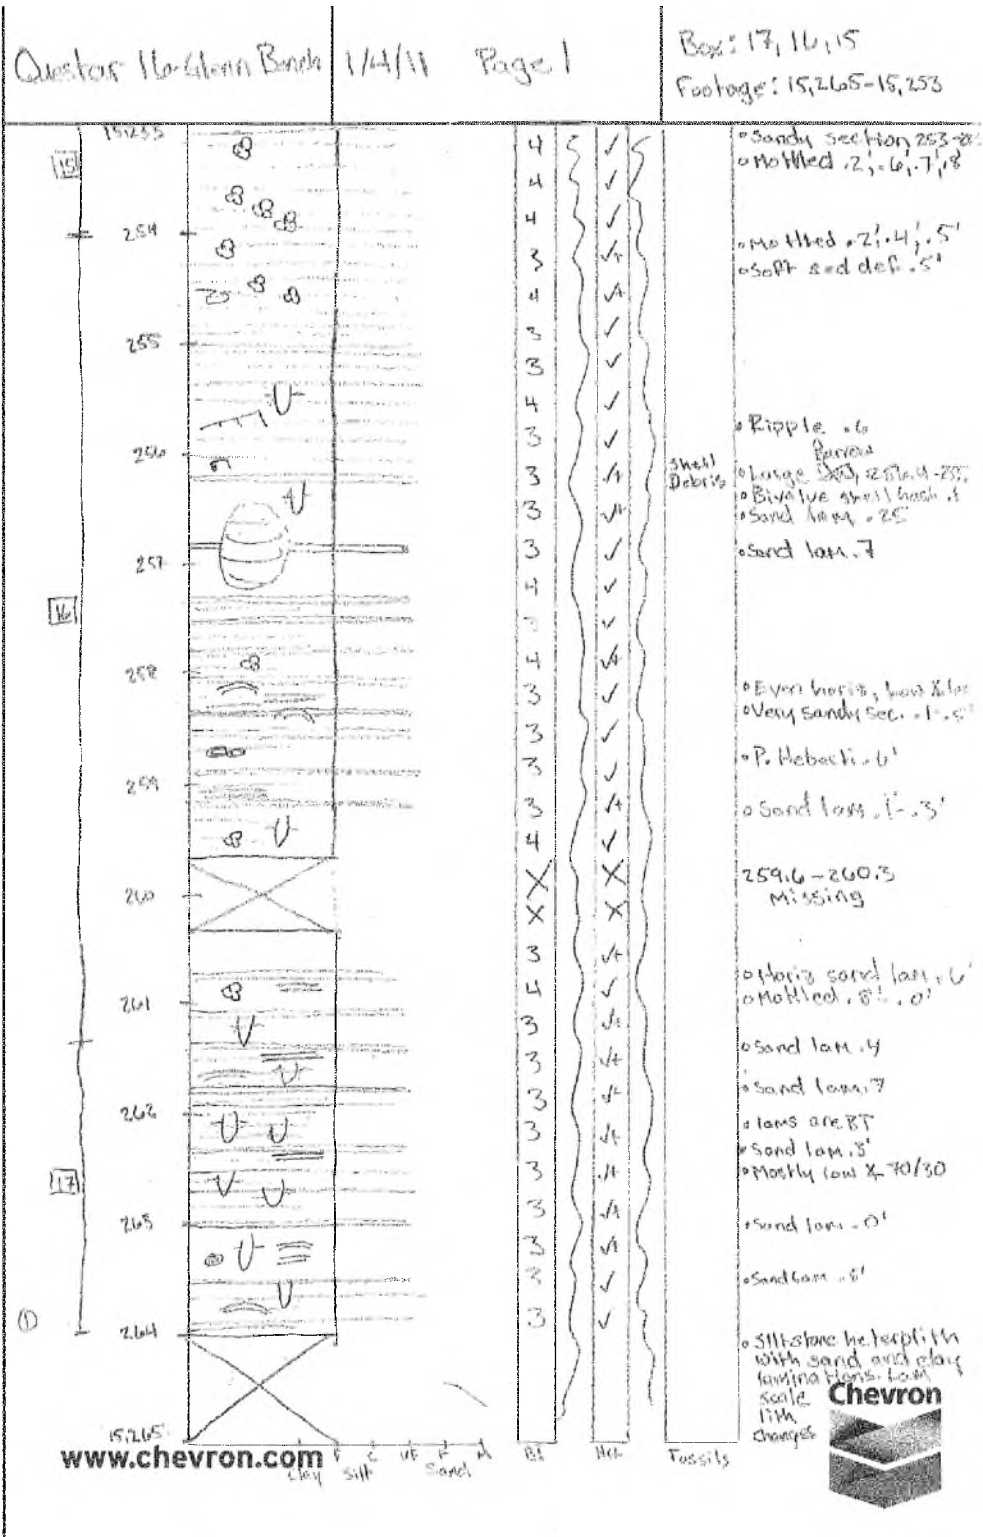 Questar 16-Glenn Bench
1/4/11
Page 1
Box: 17, 16, 15
Footage: 15,265-15,253
15,253
15
254
255
256
257
16
258
259
260
261
262
17
263
264
15,265
1
4
4
4
3
4
3
3
4
3
3
3
3
4
3
4
3
3
3
3
4
X
X
3
4
3
3
3
3
3
3
3
3
3
Shell
Debris
• Sandy section, 253-
• Mottled .2', .6', .7', .8'
• Mottled .2', .4', .5'
• Soft sed def. .5'
• Ripple .6
Burrow
• Large 256.4-
• Bivalve shell hash
• Sand lam. .25
• Sand lam. .7
• Even horiz, low
• Very sandy sec. .1-.5'
• P. Heberti .6'
• Sand lam. .1-.3'
259.6-260.3
Missing
• Horiz sand lam. .6'
• Mottled .8'-.0'
• Sand lam .4
• Sand lam. .7
• lams are BT
• Sand lam .3'
• Mostly low 70/30
• Sand lam .0'
• Sand lam .5'
• Siltstone heterolith
with sand and clay
laminations. Lam
scale
lith
changes
Chevron
www.chevron.com
Clay
Silt
VF
F
M
Sand
BI
Het
Fossils